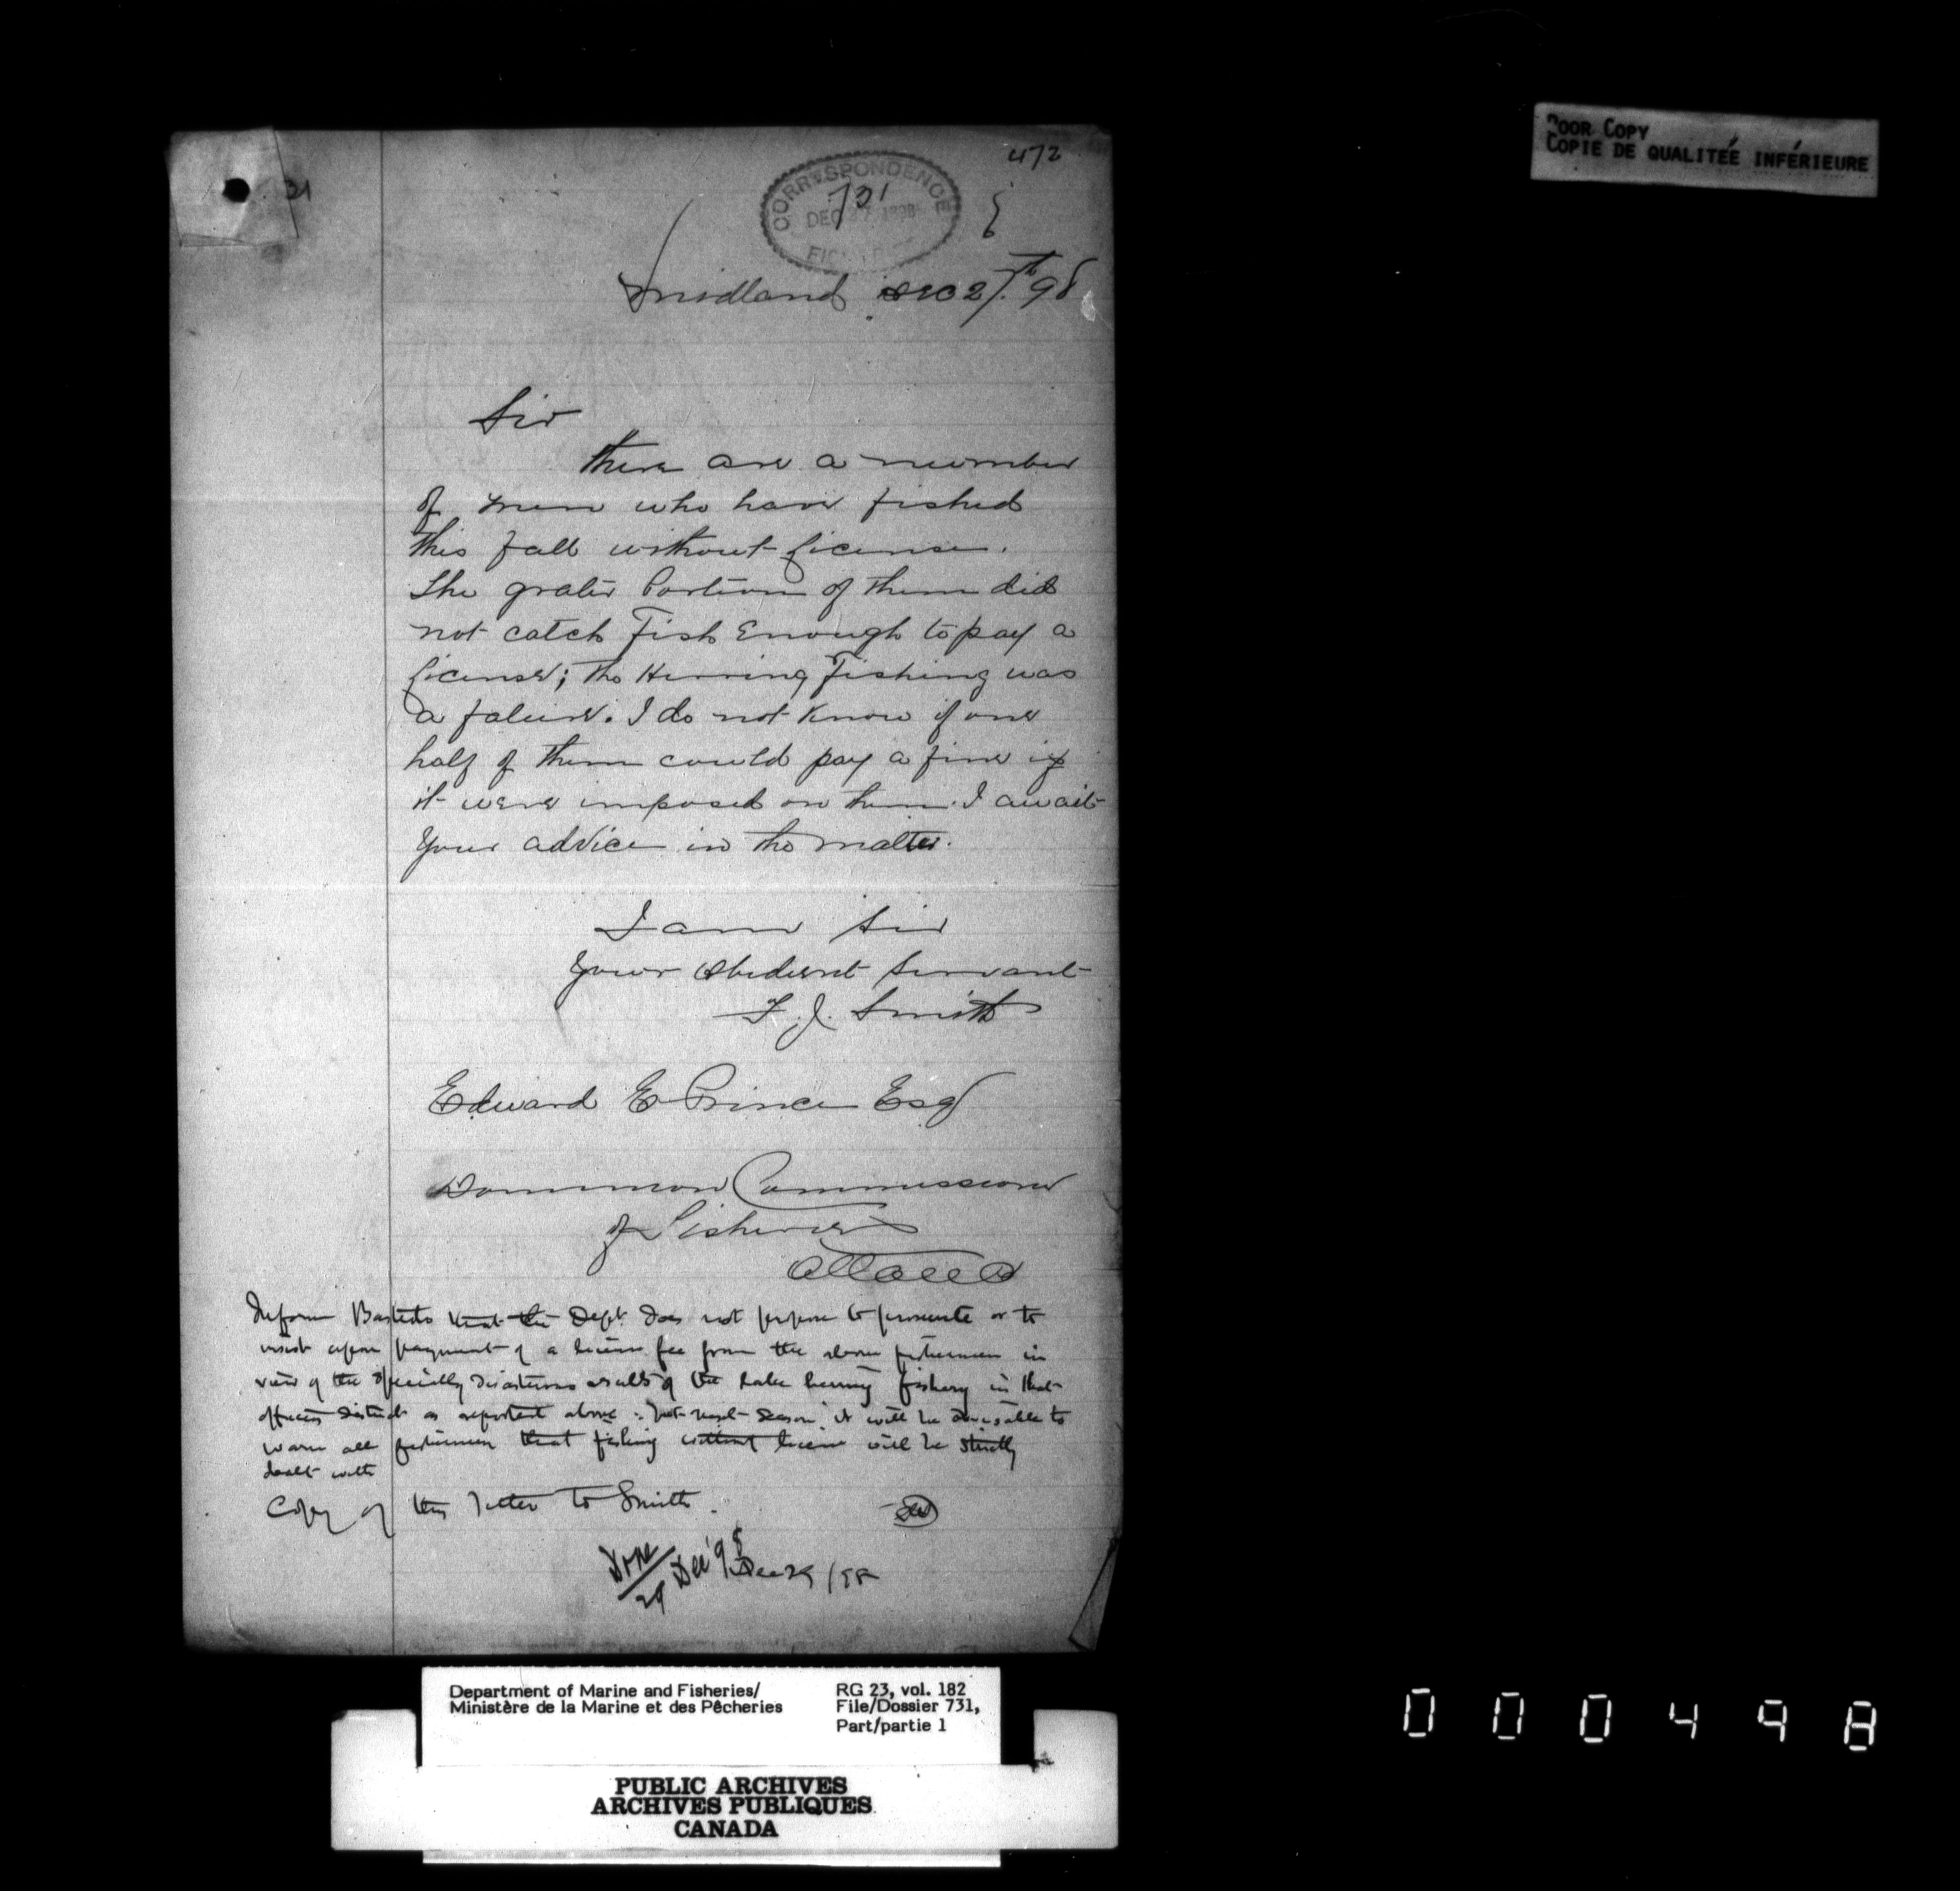 POOR COPY
COPIE DE QUALITEÉ INFÉRIEURE
472
31
CORRESPONDENCE
731
DEC 27 1898
Midland Dec 27th 98
Sir
There are a number
of men who have fished
this fall without License.
The grater Portion of them did
not catch Fish Enough to pay a
License; the Herring Fishing was
a falure. I do not Know if one
half of them could pay a fine if
it were imposed on them. I await
your advice in the matter.
I am Sir
your obedient Servant
F. J. Smith
Edward E Prince Esq
Dominion Commissioner
of Fisheries
Ottawa
Inform Bastedo that the Dept. does not propose to prosecute or to
insist upon payment of a license fee from the above fishermen in
view of the specially disastrous results of the Lake herring fishery in that
officers district as reported above: but next season it will be advisable to
warn all fishermen that fishing without license will be strictly
dealt with
Copy of this letter to Smith.
Done
29 Dec '98
Dec 29/98
Department of Marine and Fisheries/
Ministère de la Marine et des Pêcheries
RG 23, vol. 182
File/Dossier 731,
Part/partie 1
PUBLIC ARCHIVES
ARCHIVES PUBLIQUES
CANADA
000498